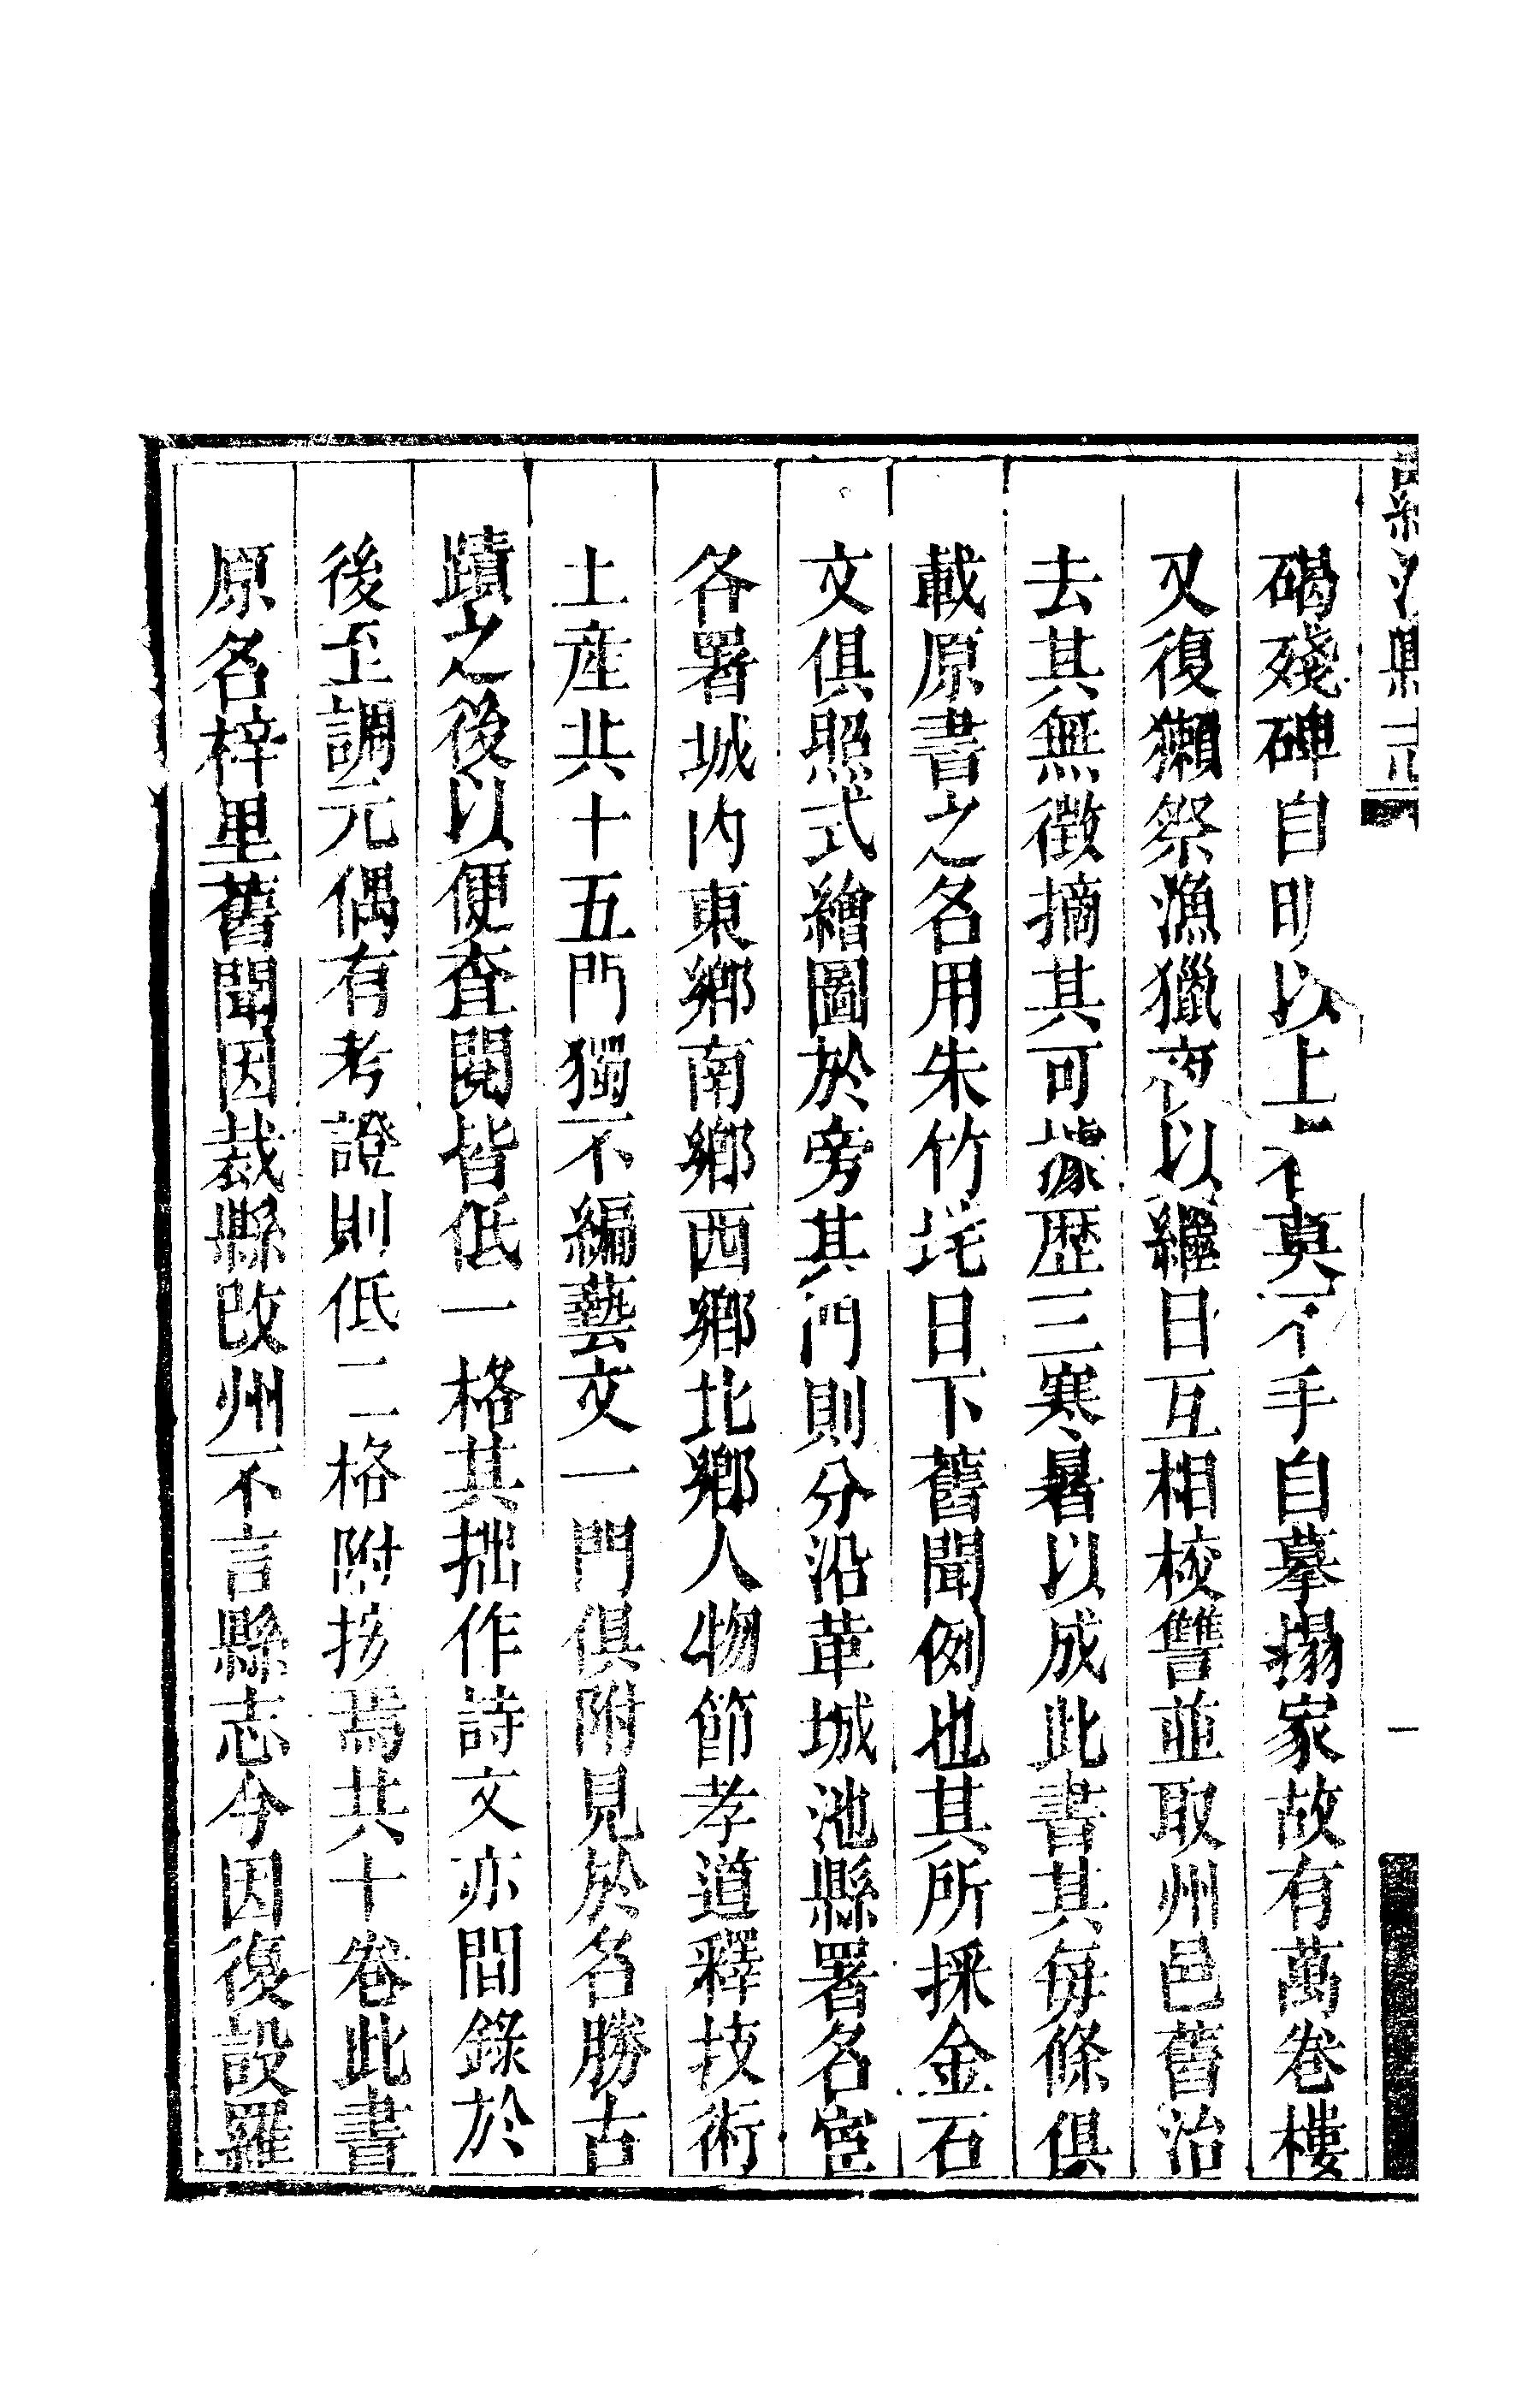 一
碣殘碑自明以上莫不手自摹搨家故有萬卷樓
又復獺祭漁獵夜以繼日互相校讐並取州邑舊治
去其無徵摘其可據歷三寒暑以成此書其毎條俱
載原書之名用朱竹垞日下舊聞例也其所採金石
文俱照式繪圖於旁其門則分沿革城池縣署名宦
各署城内東鄉南鄉西鄉北鄉人物節孝道釋技術
土產共十五門獨不編藝文一門俱附見於名勝古
蹟之後以便查閱皆低一格其拙作詩文亦間錄於
後至調元偶有考證則低二格附按焉共十卷此書
原名梓里舊聞因裁縣改州不言縣志今因復設羅